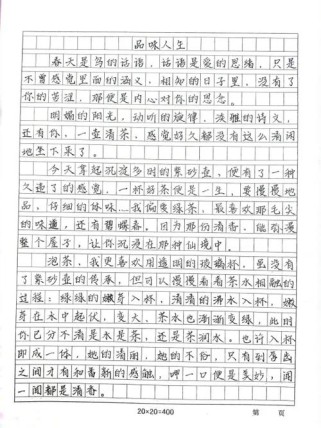 品味人生
春天是写的话语，话语是爱的思绪，只是
不曾感觉里面的涵义，相知的日子里，没有了
你的苦涩，那便是内心对你的思念。
明媚的阳光，动听的旋律，淡雅的诗文，
还有你，一壶清茶，感觉好久都没有这么清闲
地坐下来了。
今天拿起沉淀多时的紫砂壶，便有了一种
久违了的感觉，一杯好茶便是一生，要慢慢地
品，仔细的体味…我偏爱绿茶，最喜欢那毛尖
的味道，还有碧螺春。因为那份清香，能弥漫
整个屋子，让你沉浸在那种仙境中。
泡茶，我更喜欢用透明的玻璃杯，虽没有
了紫砂壶的传承，但可以慢慢看着茶水相融的
过程：绿绿的嫩芽入杯，清清的沸水入杯，嫩
芽在水中起伏，变大，茶水也渐渐变绿，此时
你已分不清是水是茶，还是茶润水。也许入杯
即成一体，她的清丽，她的不俗，只有到唇齿
之间才有和番新的感触，呷一口便是美妙，闻
一闻都是清香。
20×20=400
第 页